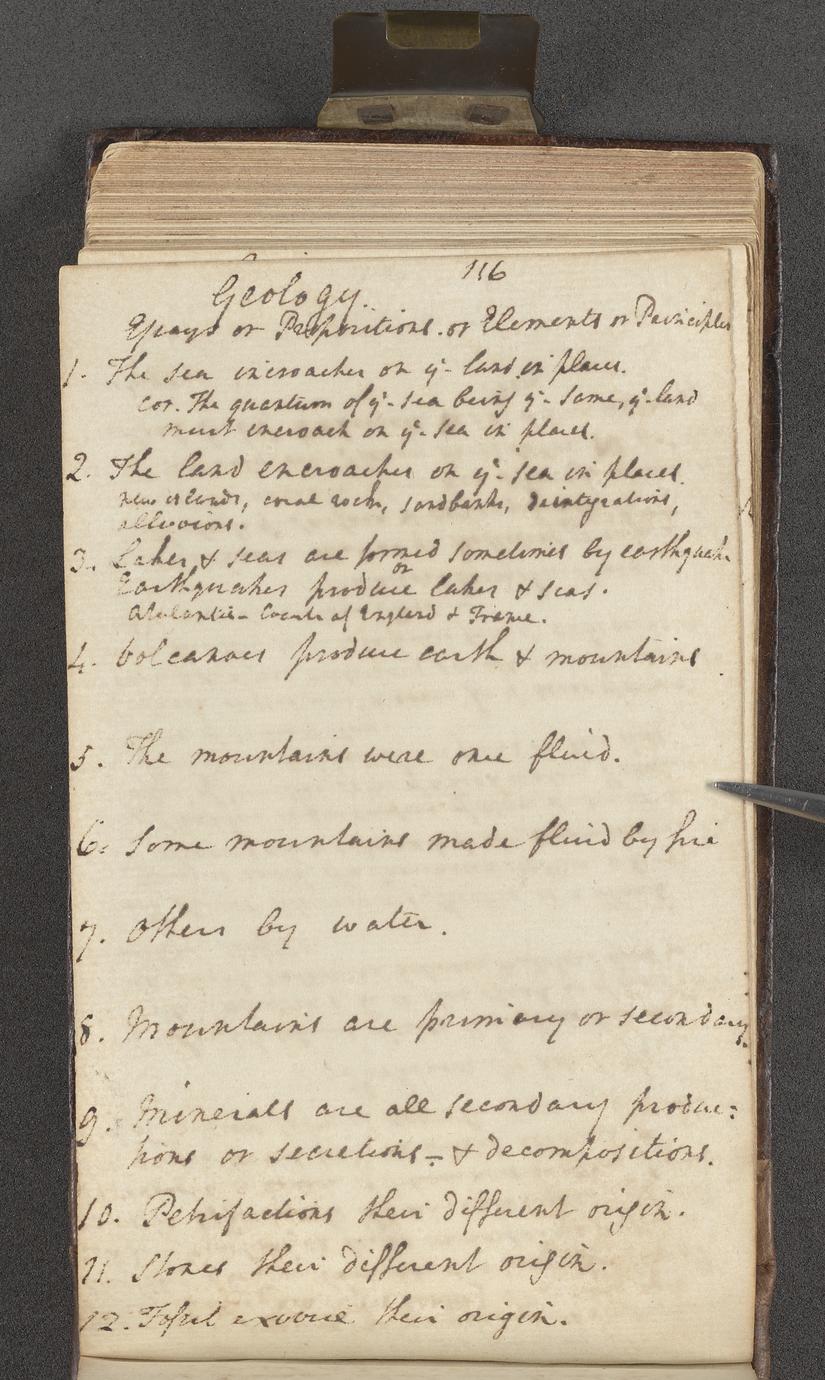 116
Geology.
Essays or Propositions. or Elements or Principles
1. The sea encroaches on ye. land in places.
cor. The quantum of ye. sea being ye. same, ye. land
must encroach on ye. sea in places.
2. The land encroaches on ye. sea in places.
new islands, coral rocks, sandbanks, disintegrations,
alluvions.
3. Lakes & seas are formed sometimes by earthquake
or
Earthquakes produce lakes & seas.
Atalantis - Coasts of England & France.
4. Volcanoes produce earth & mountains
5. The mountains were once fluid.
6. Some mountains made fluid by fire
7. Others by water.
8. Mountains are primary or secondary.
9. Minerals are all secondary produc:
tions or secretions - & decompositions.
10. Petrifactions their different origin.
11. Stones their different origin.
12. Fossil exuviæ their origin.